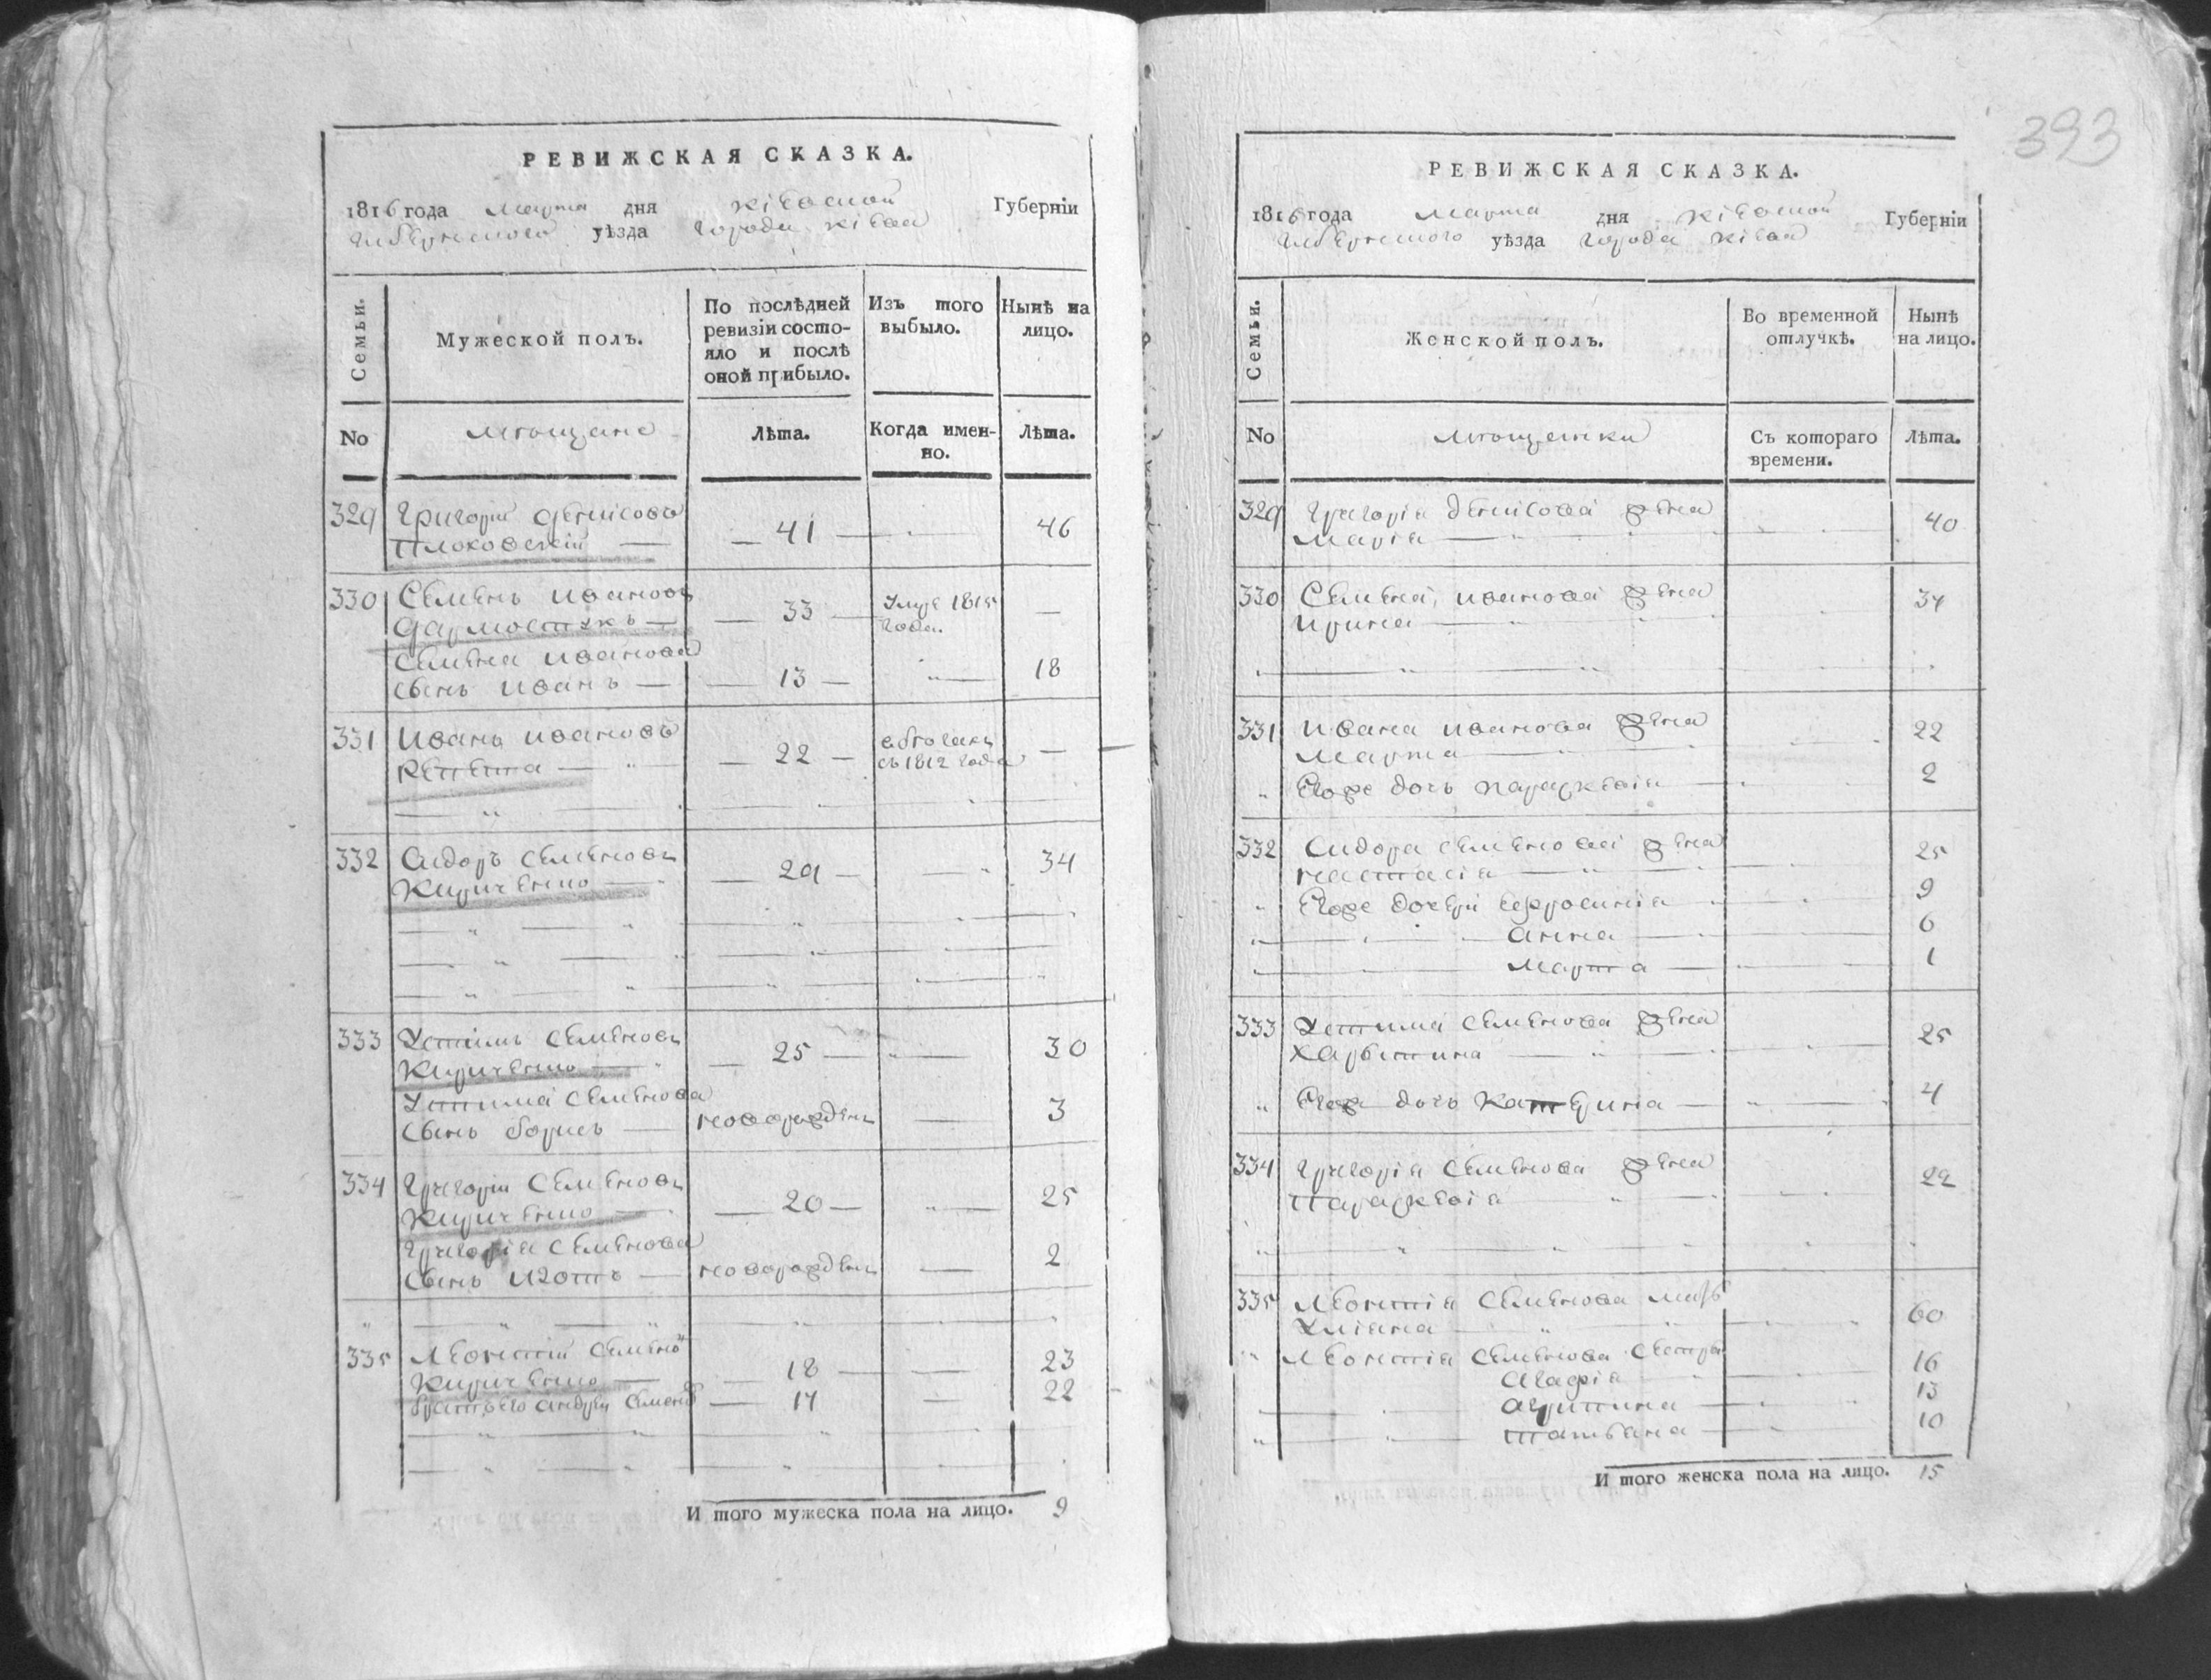 РЕВИЖСКАЯ СКАЗКА.
1816 года марта дня Кіевской Губерніи
уѣзда города Кіева
Семьи.
Мужеской полъ.
По послѣдней
ревизіи состо-
яло и послѣ
оной прибыло.
Изъ того
выбыло.
Нынѣ на
лицо.
No
мѣщане
Лѣта.
Когда имен-
но.
Лѣта.
329 Григорій Денисовъ
Плоховскій — 41 — 46
330 Семенъ Ивановъ
— 33 — 1815
года. —
Семена Иванова
сынъ Иванъ — 13 — 18
331 Иванъ Ивановъ
Репета — 22 — въ бѣгахъ
съ 1812 года —
332 Сидоръ Семеновъ
Кириченко — 29 — 34
333 Устимъ Семеновъ
Кириченко — 25 — 30
Устима Семенова
сынъ Борисъ — новорожденъ — 3
334 Григорій Семеновъ
Кириченко — 20 — 25
Григорія Семенова
сынъ Изотъ — новорожденъ — 2
335 Леонтій Семеновъ
Кириченко — 18 — 23
братъ его Андрей Семеновъ — 17 — 22
И того мужеска пола на лицо. 9
393
РЕВИЖСКАЯ СКАЗКА.
1816 года марта дня Кіевской Губерніи
уѣзда города Кіева
Семьи.
Женской полъ.
Во временной
отлучкѣ.
Нынѣ
на лицо.
No
мѣщанки
Съ котораго
времени.
Лѣта.
329 Григорія Денисова жена
Марія — 40
330 Семена Иванова жена
Ирина — 34
331 Ивана Иванова жена
Марта — 22
Егоже дочь Параскевія — 2
332 Сидора Семенова жена
Настасія — 25
Егоже дочери Ефросинія — 9
Анна — 6
Марта — 1
333 Устима Семенова жена
Харытина — 25
Егоже дочь Катерина — 4
334 Григорія Семенова жена
Параскевія — 22
335 Леонтія Семенова мать
Уліана — 60
Леонтія Семенова сестры
Агафія — 16
Агрипина — 13
Татьяна — 10
И того женска пола на лицо. 15